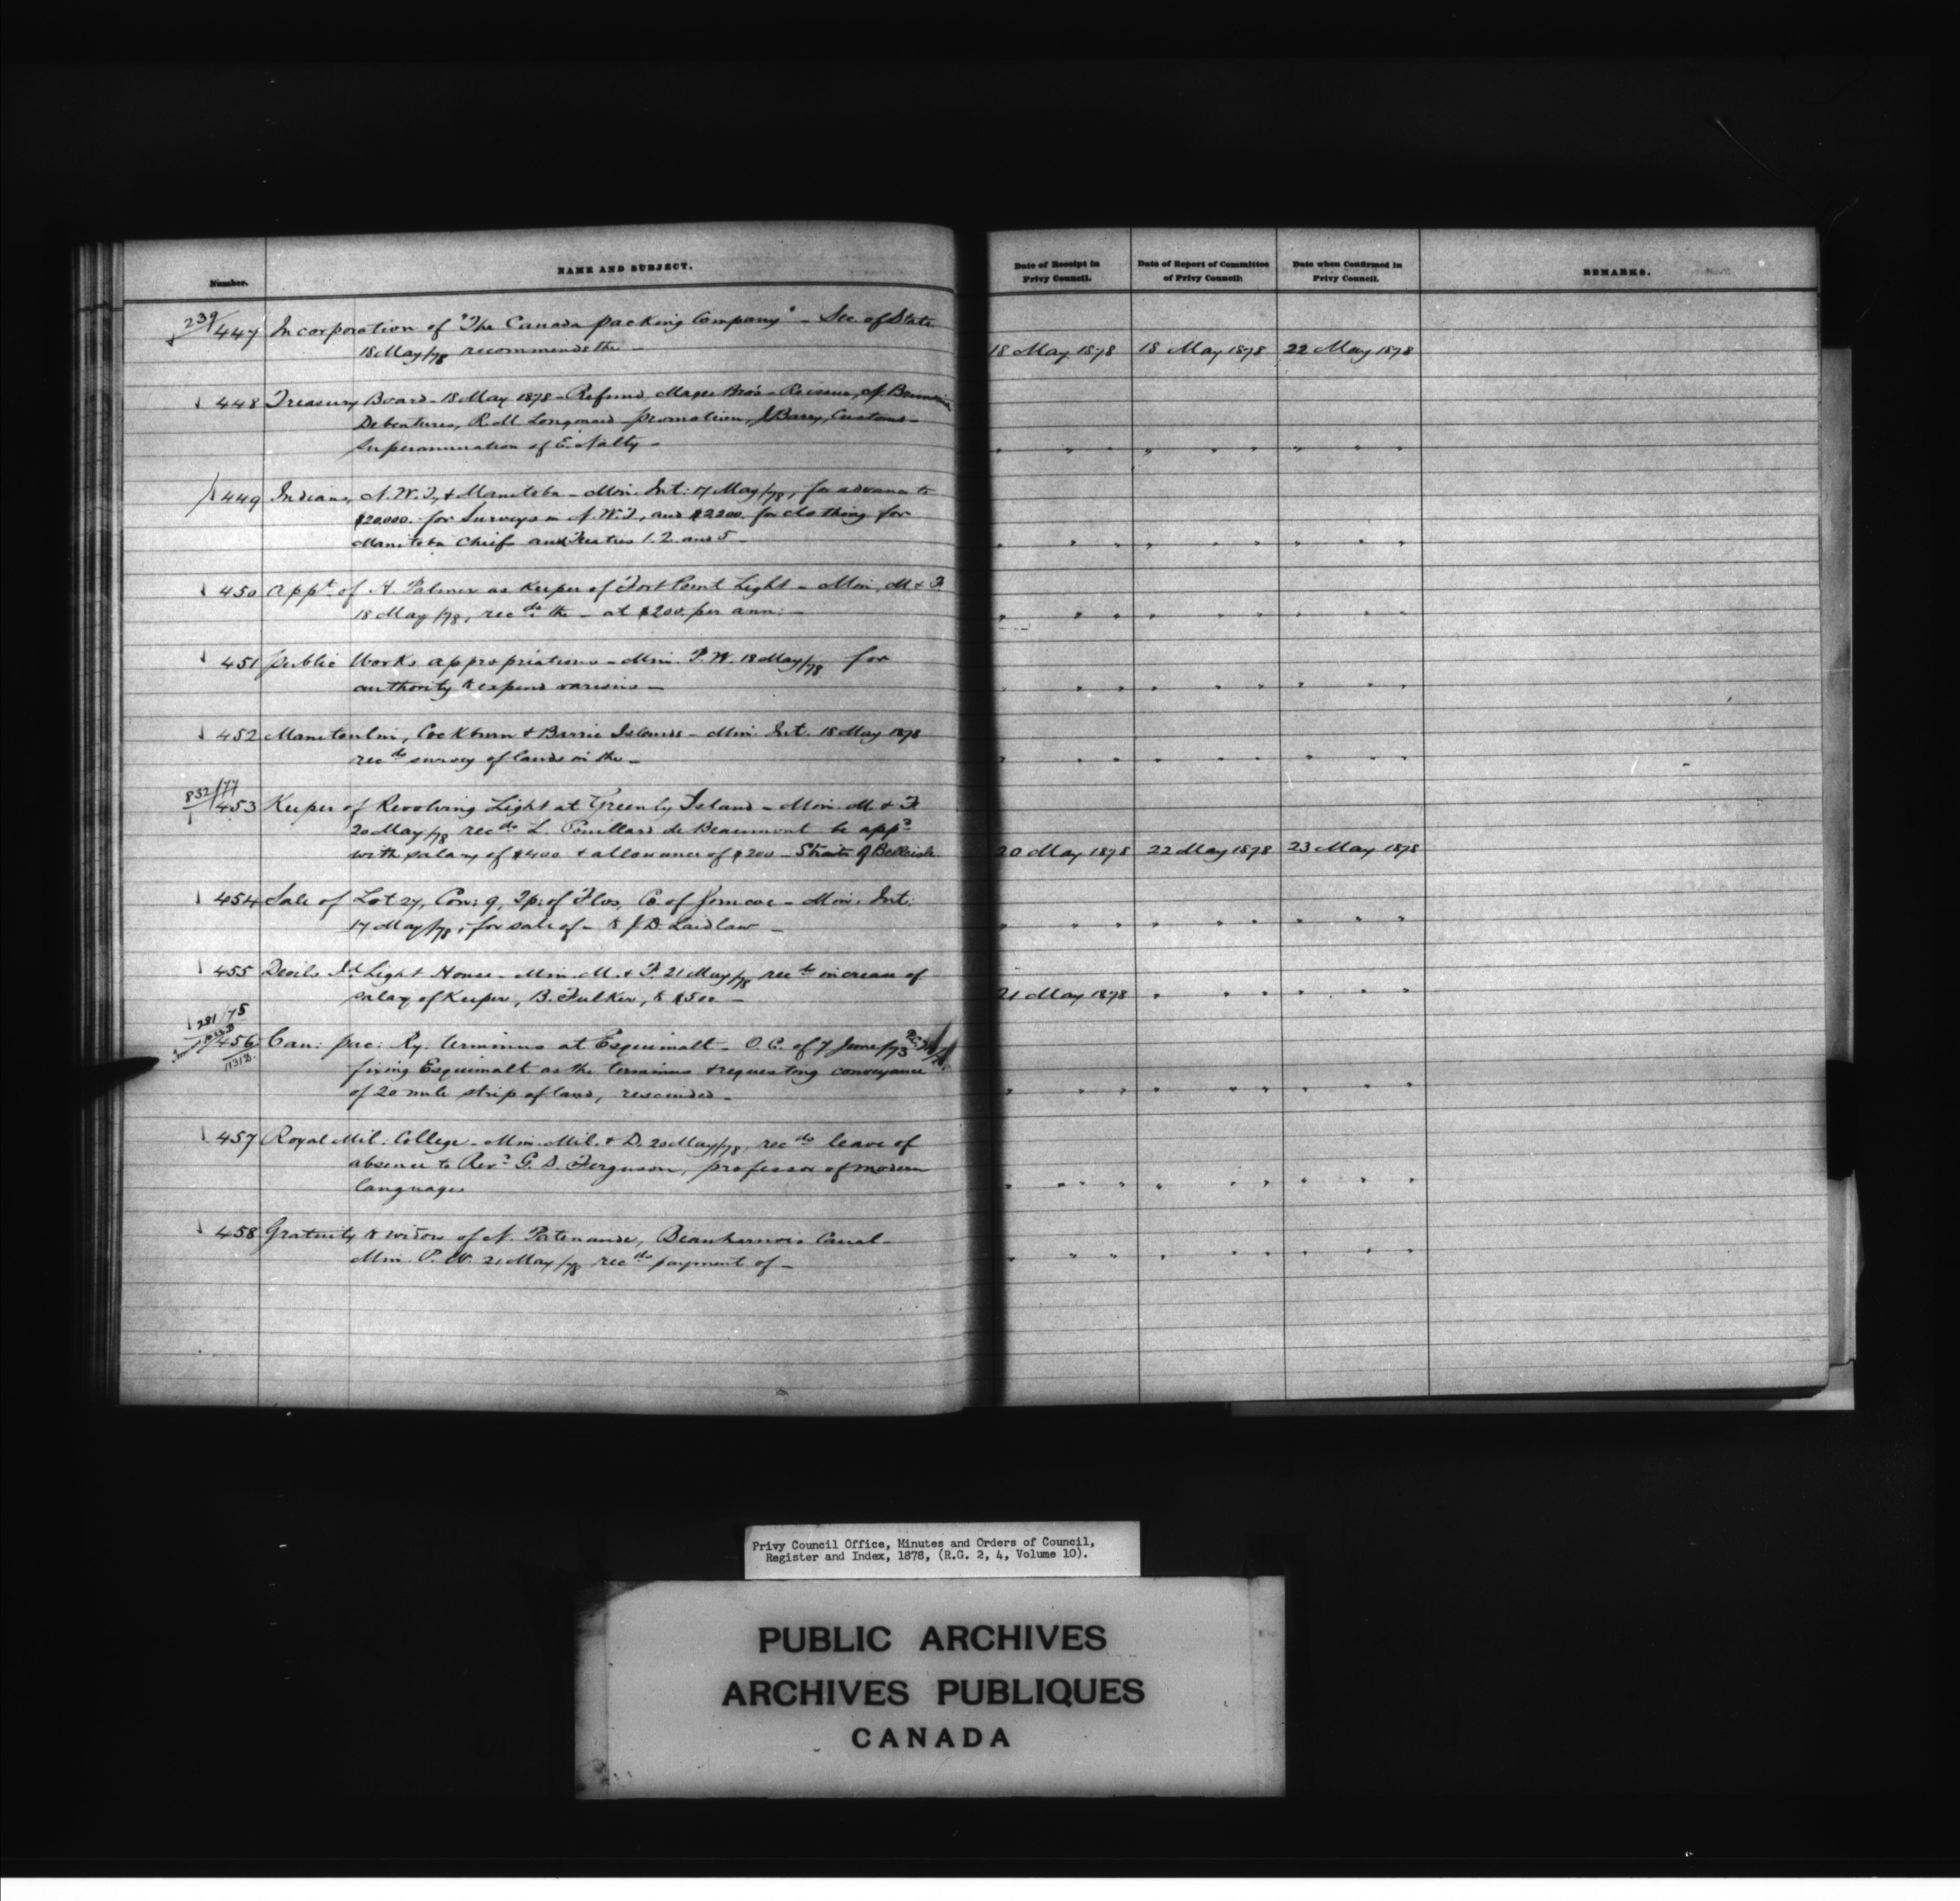 Number.
NAME AND SUBJECT.
Date of Receipt in
Privy Council.
Date of Report of Committee
of Privy Council.
Date when Confirmed in
Privy Council.
REMARKS.
239
447 Incorporation of "The Canada Packing Company" - Sec. of State
18 May/78 recommends the -
18 May 1878 18 May 1878 22 May 1878
448 Treasury Board - 18 May 1878 - Refund, Magee Bros - Reissue, of
Debentures, R.M. - promotion, J Barry, Customs -
Superannuation of E. Nalty -
" " " " " " " " "
449 Indians, N.W.T. & Manitoba - Min. Int: 17 May/78, for advance to
$20000. for Surveys in N.W.T, and $2200. for clothing for
Manitoba Chiefs and Treaties 1. 2. and 5 -
" " " " " " " " "
450 Appt. of H. Palmer as Keeper of Fort Point Light - Min. M & F.
18 May/78, recds the - at $200. per ann: -
" " " " " " " " "
451 Public Works appropriations - Min. P.W. 18 May/78 for
authority to expend various -
" " " " " " " " "
452 Manitoulin, Cockburn & Barrie Islands - Min. Int. 18 May 1878
recds survey of lands in the -
" " " " " " " " "
832/77
453 Keeper of Revolving Light at Greenly Island - Min. M. & F.
20 May/78 recds L. Pouillard de Beaumont be appd
with salary of $400 & allowance of $200 - Straits of Belleisle
20 May 1878 22 May 1878 23 May 1878
454 Sale of Lot 27, Con: 9, Tp: of Flos, Co. of Simcoe - Min. Int:
17 May/78, for sale of - to J.D. Laidlaw -
" " " " " " " " "
455 Devils Id. Light House - Min. M. & F. 21 May/78 recds increase of
salary of Keeper, B. Fulker, to $500 -
21 May 1878 " " " " " "
281/75
456 Can: Pac: Ry. terminus at Esquimalt - O.C. of 7 June/73
1131 D.
fixing Esquimalt as the terminus & requesting conveyance
of 20 mile strip of land, rescinded -
" " " " " " " " "
457 Royal Mil: College - Min. Mil. & D. 20 May/78, recds leave of
absence to Revd. G. D. Ferguson, professor of modern
languages
" " " " " " " " "
458 Gratuity to widow of N. Patenaude, Beauharnois Canal -
Min. P.W. 21 May/78 recds payment of -
" " " " " " " " "
Privy Council Office, Minutes and Orders of Council,
Register and Index, 1878, (R.G. 2, 4, Volume 10).
PUBLIC ARCHIVES
ARCHIVES PUBLIQUES
CANADA